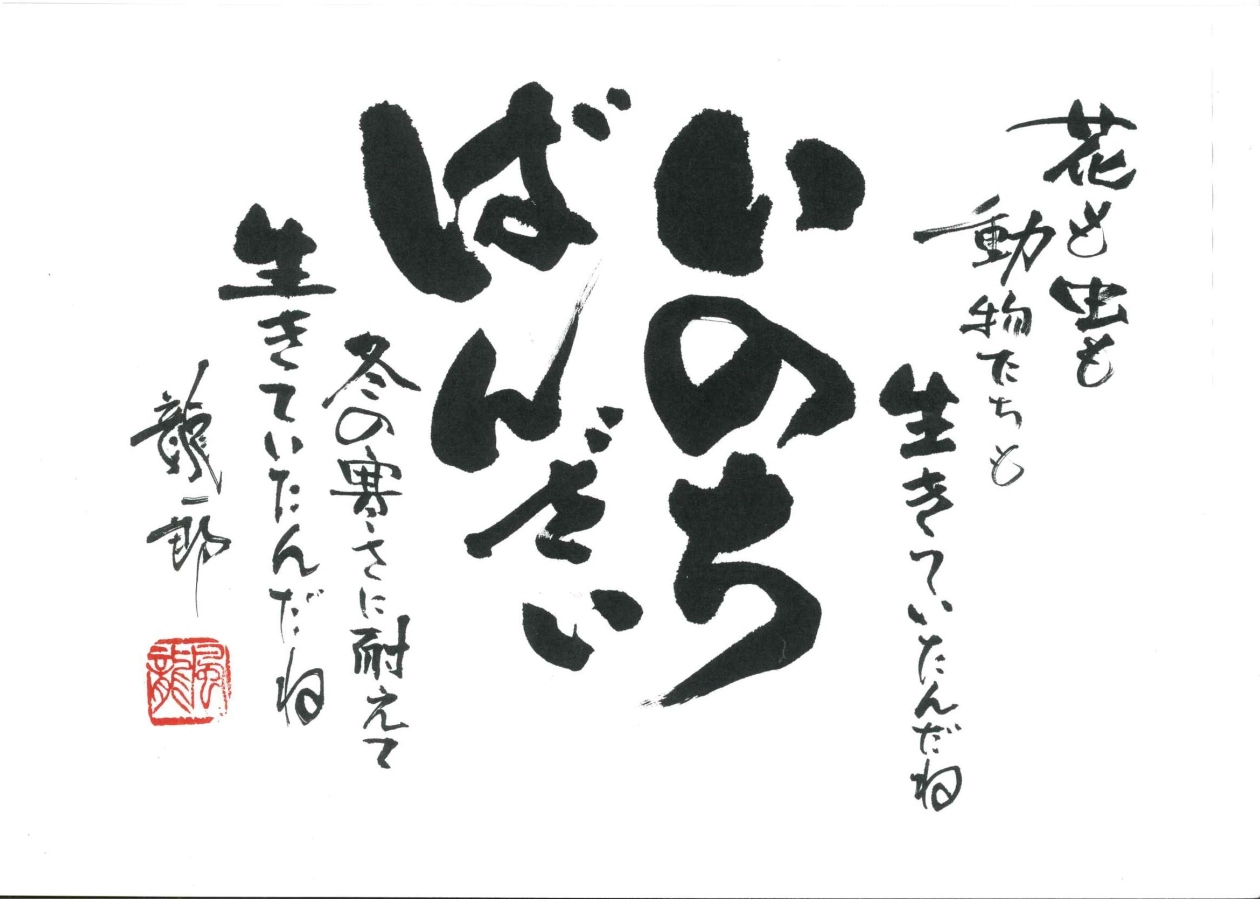 花も虫も
動物たちも
生きていたんだね
いのち
ばんざい
冬の寒さに耐えて
生きていたんだね
龍一郎
風龍